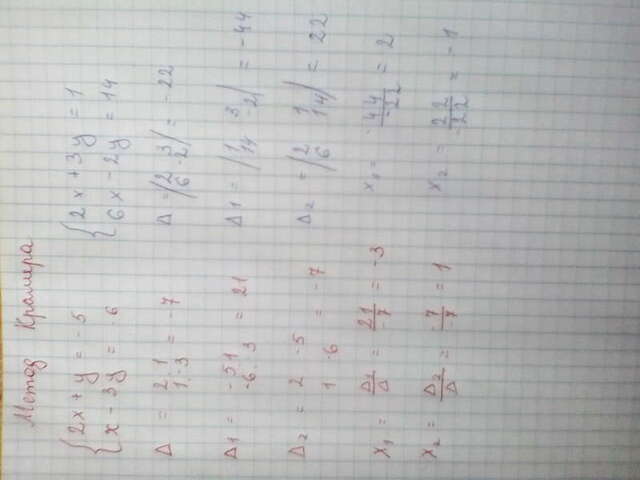 Метод Крамера
{2x + y = -5
x - 3y = -6
Δ = 2 1
1 -3 = -7
Δ1 = -5 1
-6 -3 = 21
Δ2 = 2 -5
1 -6 = -7
x1 = Δ1/Δ = 21/-7 = -3
x2 = Δ2/Δ = -7/-7 = 1
{2x + 3y = 1
6x - 2y = 14
Δ = |2 3
6 -2| = -22
Δ1 = |1 3
14 -2| = -44
Δ2 = |2 1
6 14| = 22
x1 = -44/-22 = 2
x2 = 22/-22 = -1